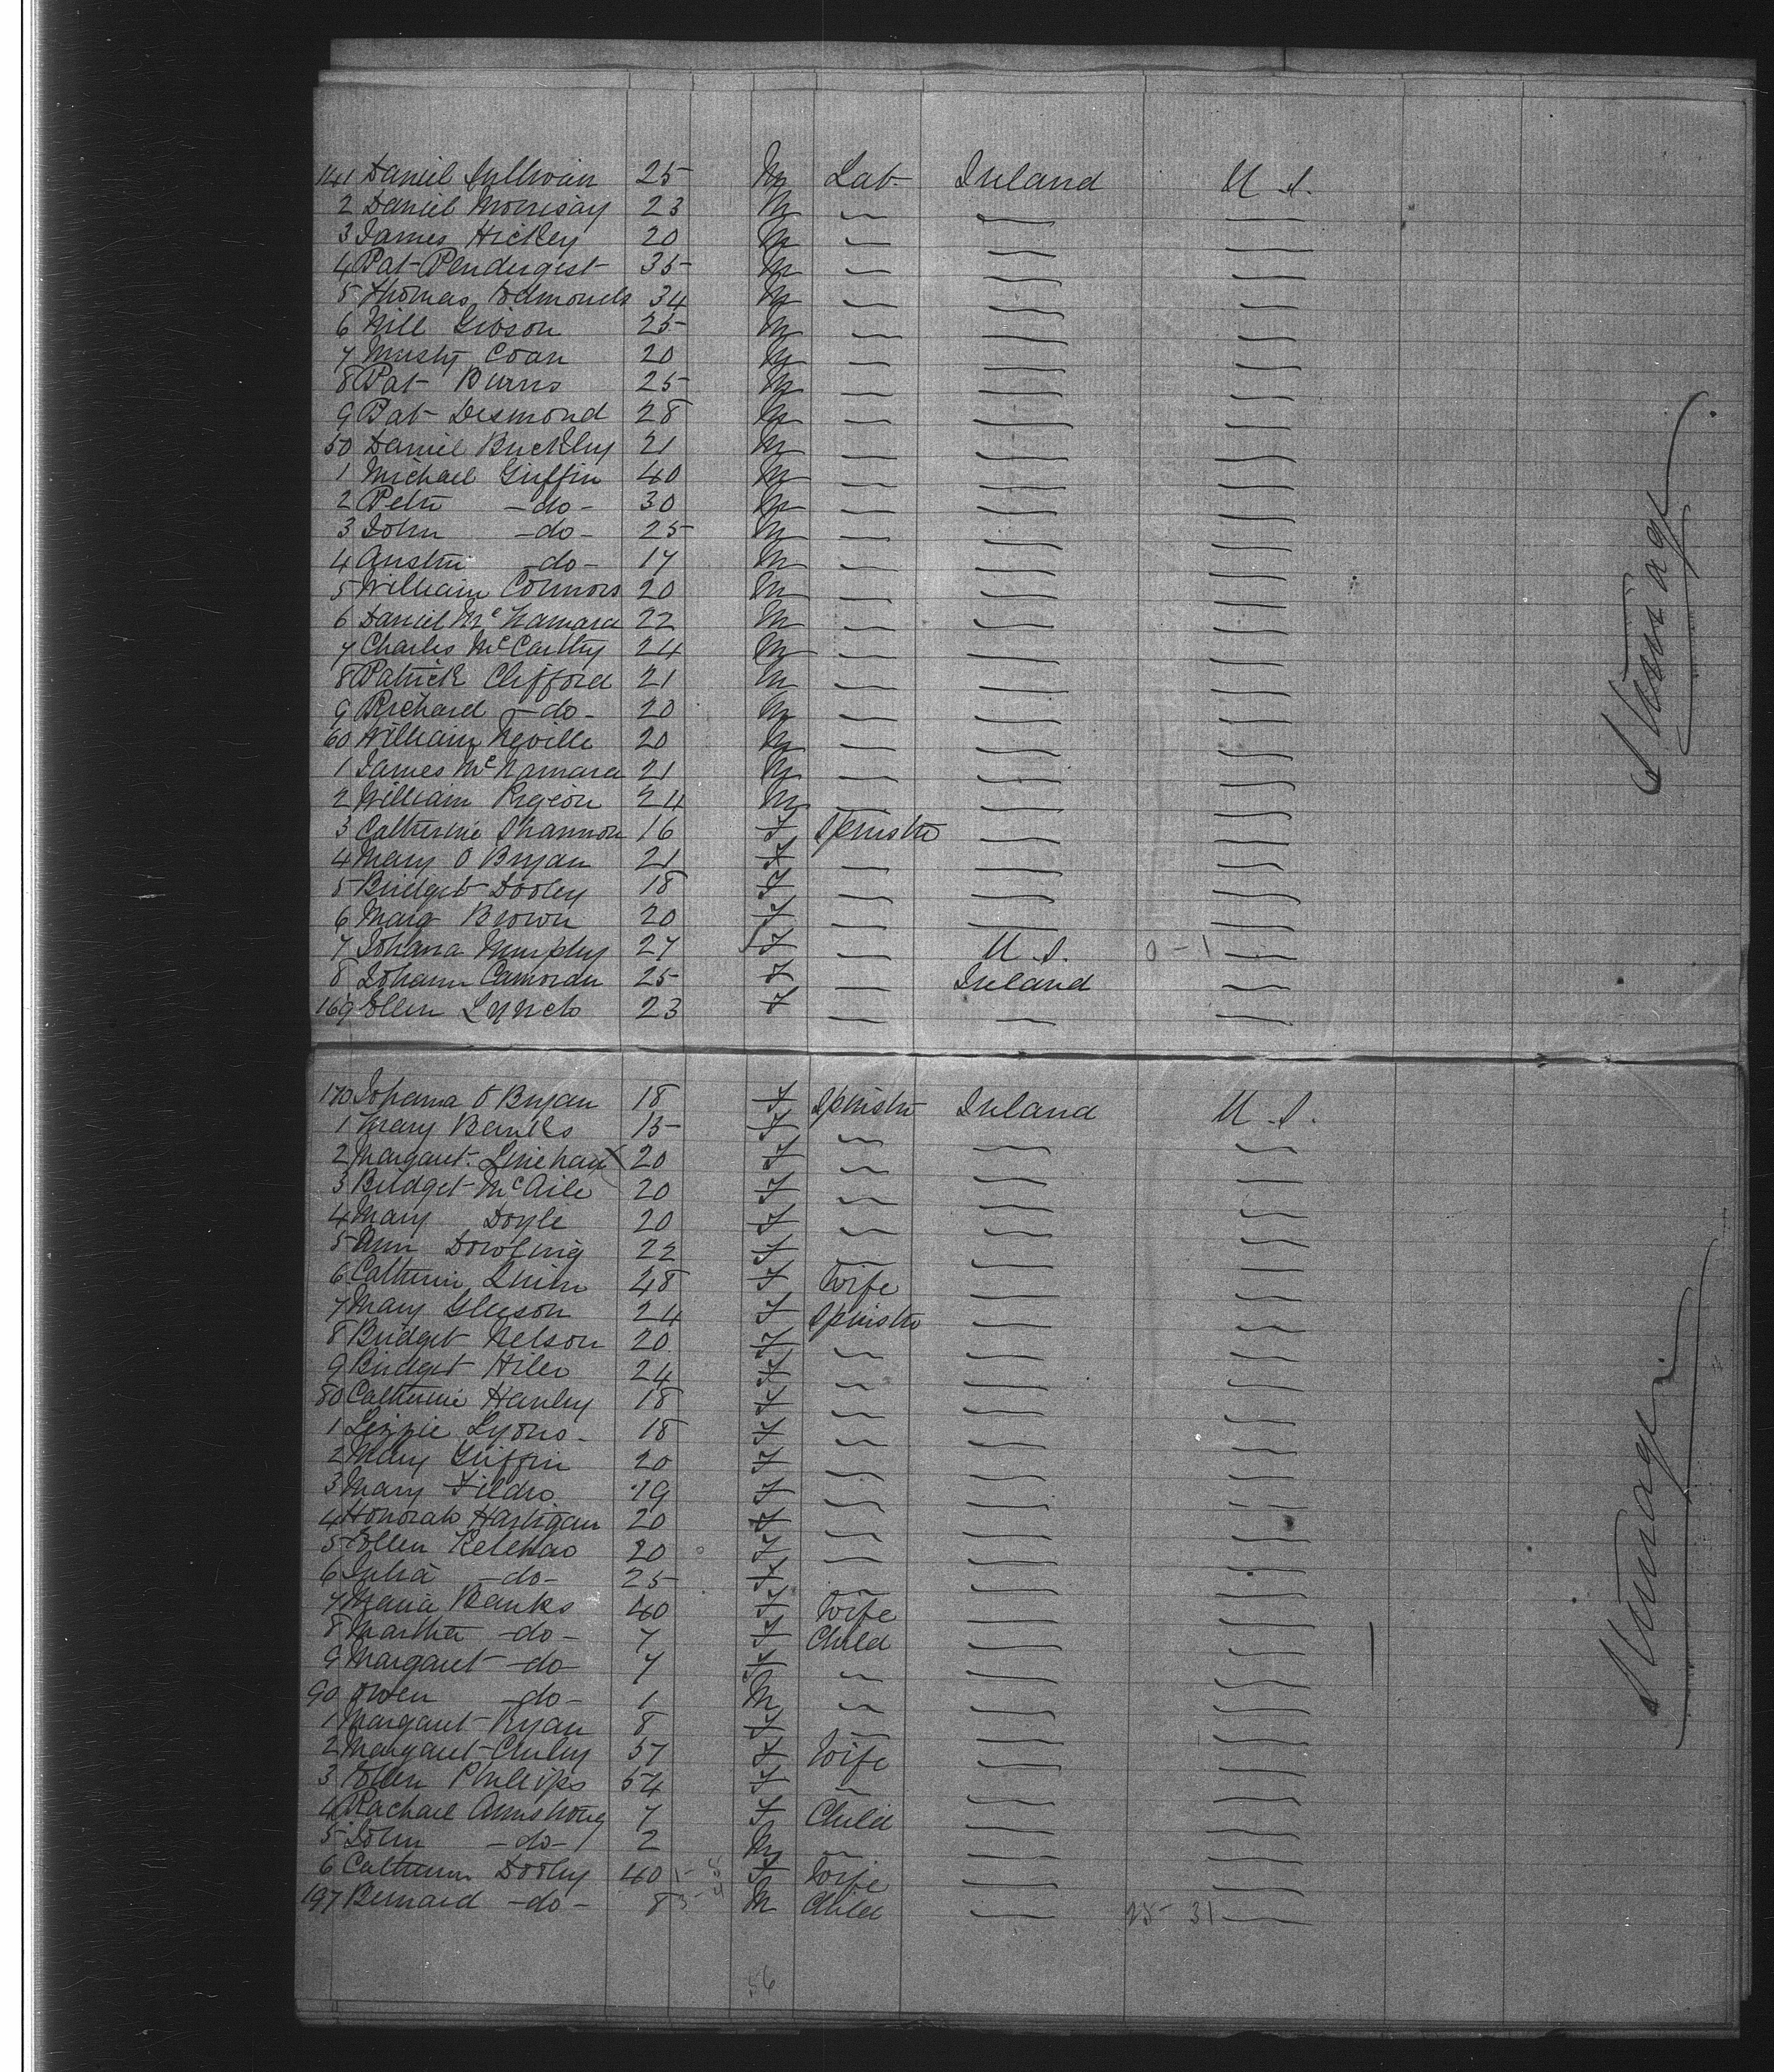 141 Daniel Sullivan 25 M Lab. Ireland U.S.
2 Daniel Morrisay 23 M " " "
3 James Hickey 20 M " " "
4 Pat Pendergist 35 M " " "
5 Thomas Edmonds 34 M " " "
6 Will Gibson 25 M " " "
7 Musty Coan 20 M " " "
8 Pat Burns 25 M " " "
9 Pat Desmond 28 M " " "
50 Daniel Buckley 21 M " " "
1 Michael Griffin 40 M " " "
2 Peter -do- 30 M " " "
3 John -do- 25 M " " "
4 Austin -do- 17 M " " "
5 William Connors 20 M " " "
6 Daniel McNamara 22 M " " "
7 Charles McCarthy 24 M " " "
8 Patrick Clifford 21 M " " "
9 Richard -do- 20 M " " "
60 William Neville 20 M " " "
1 James McNamara 21 M " " "
2 William Pigeon 24 M " " "
3 Catherine Shannon 16 F Spinster " "
4 Mary O Bryan 21 F " " "
5 Bridget Dooley 18 F " " "
6 Marg Brown 20 F " " "
7 Johana Murphy 27 F " U.S. 0-1 "
8 Johann 25 F " Ireland "
169 Ellen Lynch 23 F " " "
Steerage
170 Johana O Bryan 18 F Spinster Ireland U.S.
1 Mary Banks 15 F " " "
2 Margaret Linehan 20 F " " "
3 Bridget McAile 20 F " " "
4 Mary Doyle 20 F " " "
5 Ann Dowling 22 F " " "
6 Catherin Quinn 48 F Wife " "
7 Mary Gleeson 24 F Spinster " "
8 Bridget Nelson 20 F " " "
9 Bridget Hiler 24 F " " "
80 Catherine Hanley 18 F " " "
1 Lizzie Lyons 18 F " " "
2 Mary Griffin 20 F " " "
3 Mary 19 F " " "
4 Honorah Hartigan 20 F " " "
5 Ellen Kelehar 20 F " " "
6 Julia -do- 25 F " " "
7 Maria Banks 40 F Wife " "
8 Martha -do- 7 F Child " "
9 Margaret -do- 7 F " " "
90 Owen -do- 1 M " " "
1 Margaret Ryan 8 F " " "
2 Margaret Curley 57 F Wife " "
3 Ellen Phillips 54 F " " "
4 Rachael Armstrong 7 F Child " "
5 John -do- 2 M " " "
6 Catherin Dooley 40 F Wife " "
197 Bernard -do- 8 M Child " 25 31 "
56
Steerage